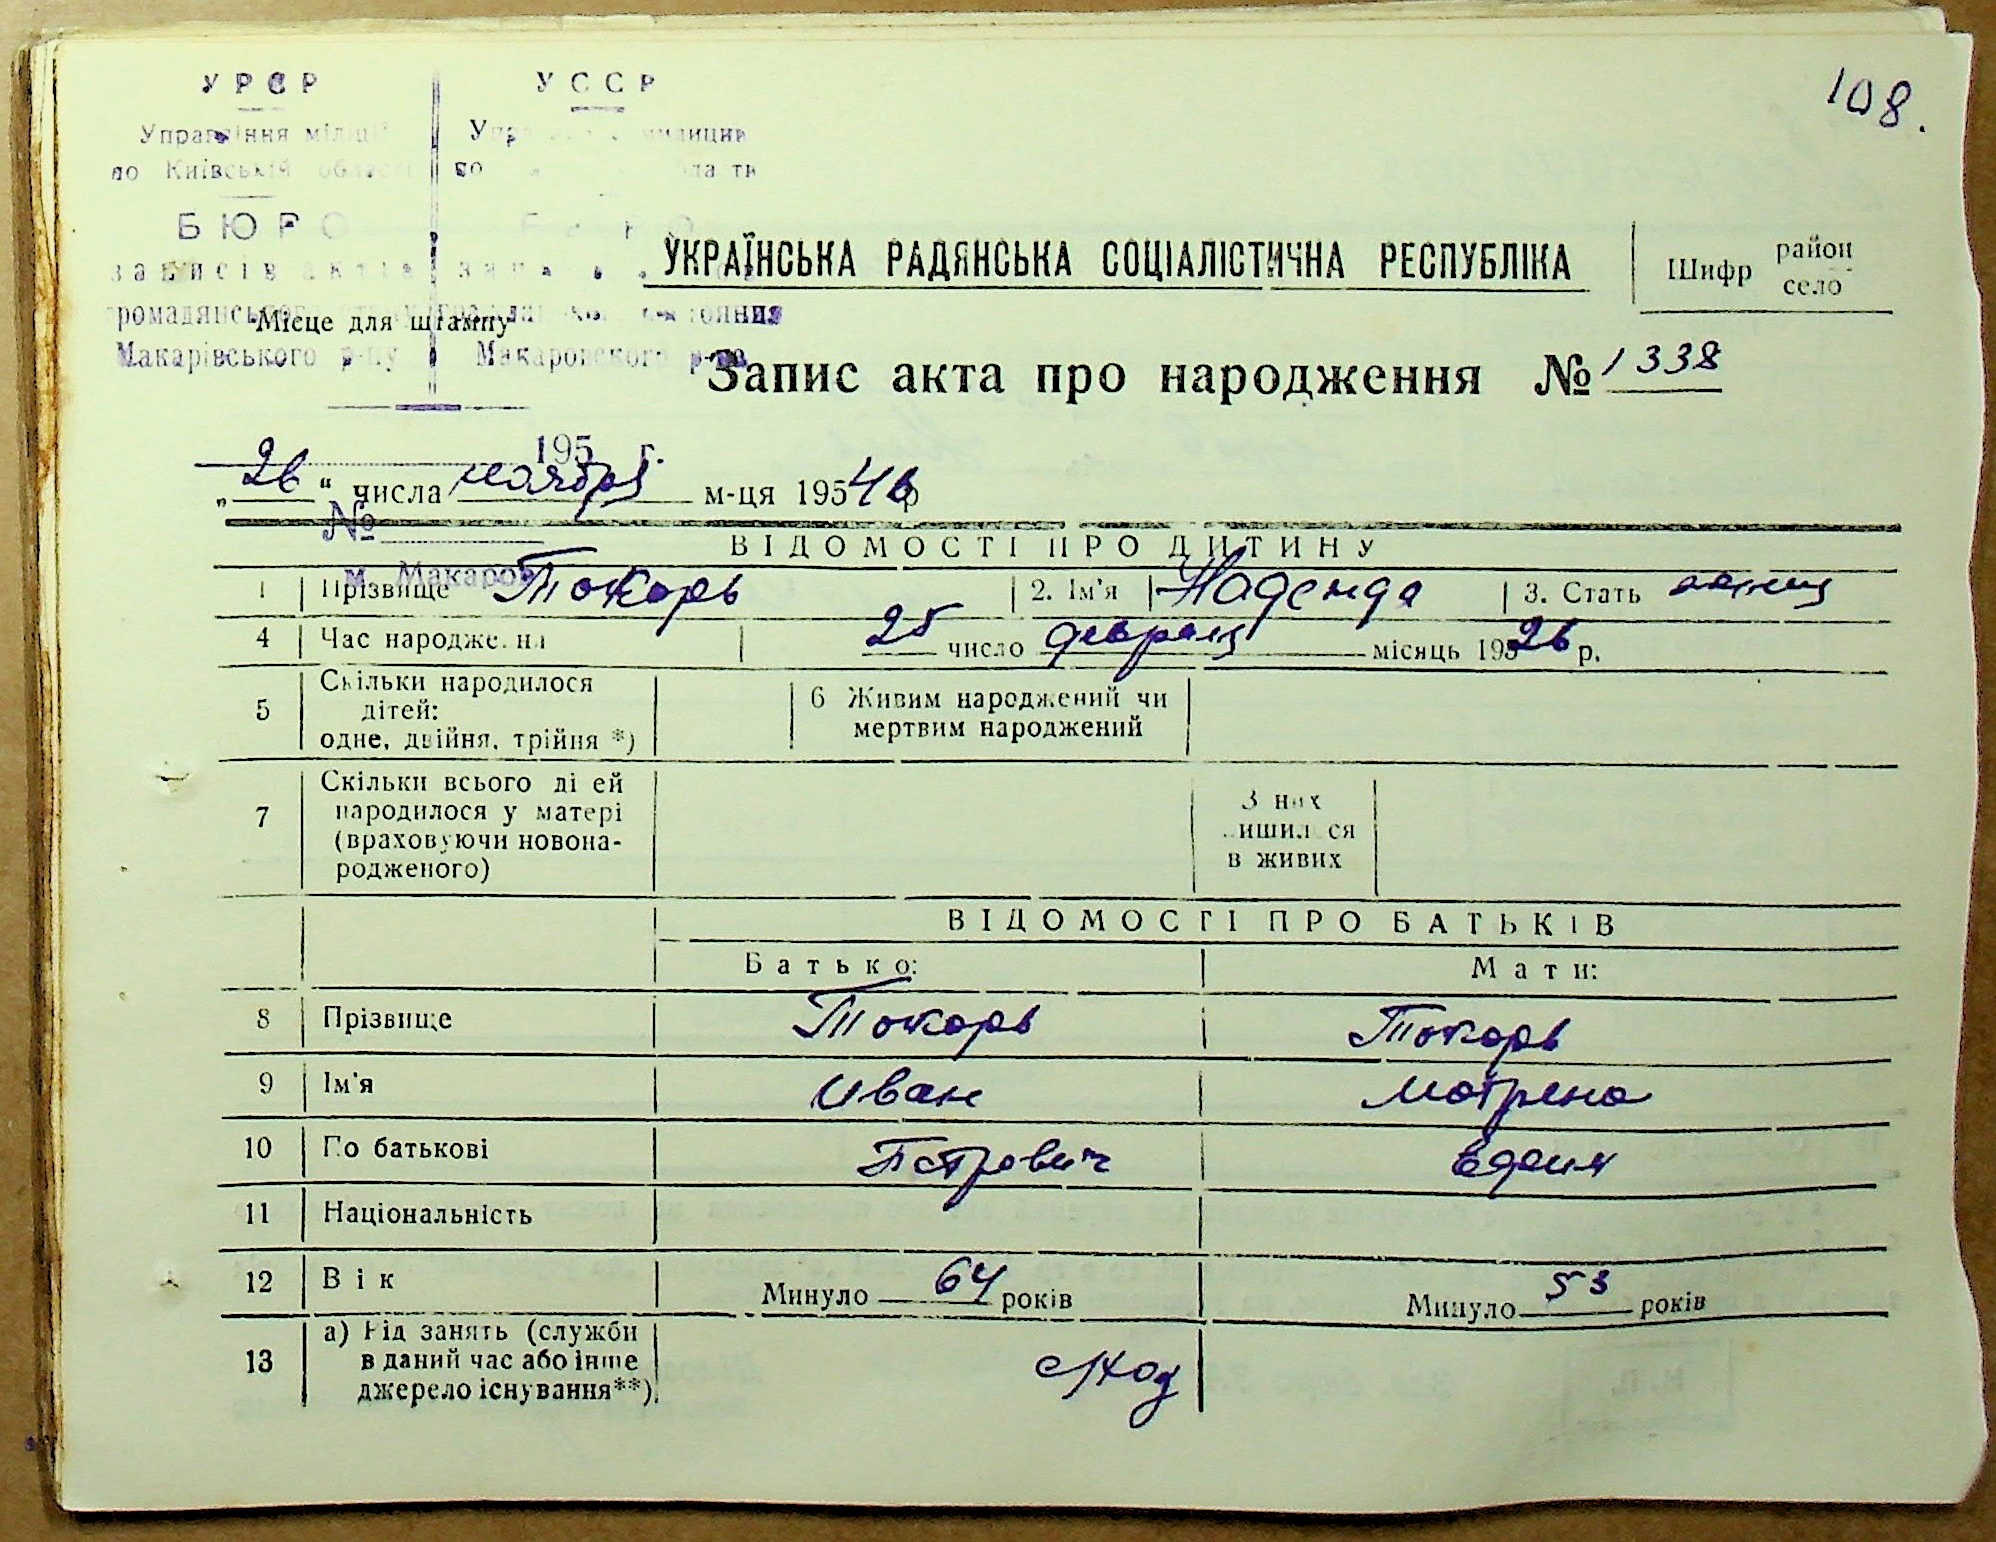 108.
УРСР УССР
Управління міліції
по Київській області по
БЮРО
записів актів
громадянського
Місце для штампу
Макарівського р-ну Макаровского р-на
УКРАЇНСЬКА РАДЯНСЬКА СОЦІАЛІСТИЧНА РЕСПУБЛІКА
Шифр район
село
Запис акта про народження № 1338
195 г.
„26“ числа ноября м-ця 195
№
ВІДОМОСТІ ПРО ДИТИНУ
м. Макаров
1 Прізвище Токарь 2. Ім'я Надежда 3. Стать
4 Час народження 25 число февраля місяць 1926 р.
5 Скільки народилося
дітей:
одне, двійня, трійня *)
6 Живим народжений чи
мертвим народжений
7 Скільки всього дітей
народилося у матері
(враховуючи новона-
родженого)
З них
лишилося
в живих
ВІДОМОСТІ ПРО БАТЬКІВ
Батько: Мати:
8 Прізвище Токарь Токарь
9 Ім'я Иван Мотрена
10 По батькові Петрович
11 Національність
12 Вік Минуло 64 років Минуло 53 років
13 а) Рід занять (служби
в даний час або інше
джерело існування**)